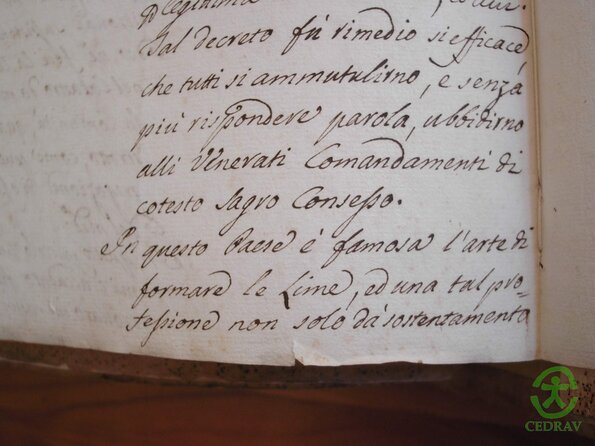 Tal decreto fù rimedio si efficace
che tutti si ammutulirno, e senza
più rispondere parola, ubbidirno
alli Venerati Comandamenti di
cotesto Sagro Consesso.
In questo Paese è famosa l'arte di
formare le Lime, ed una tal pro-
fessione non solo dà sostentamento
CEDRAV